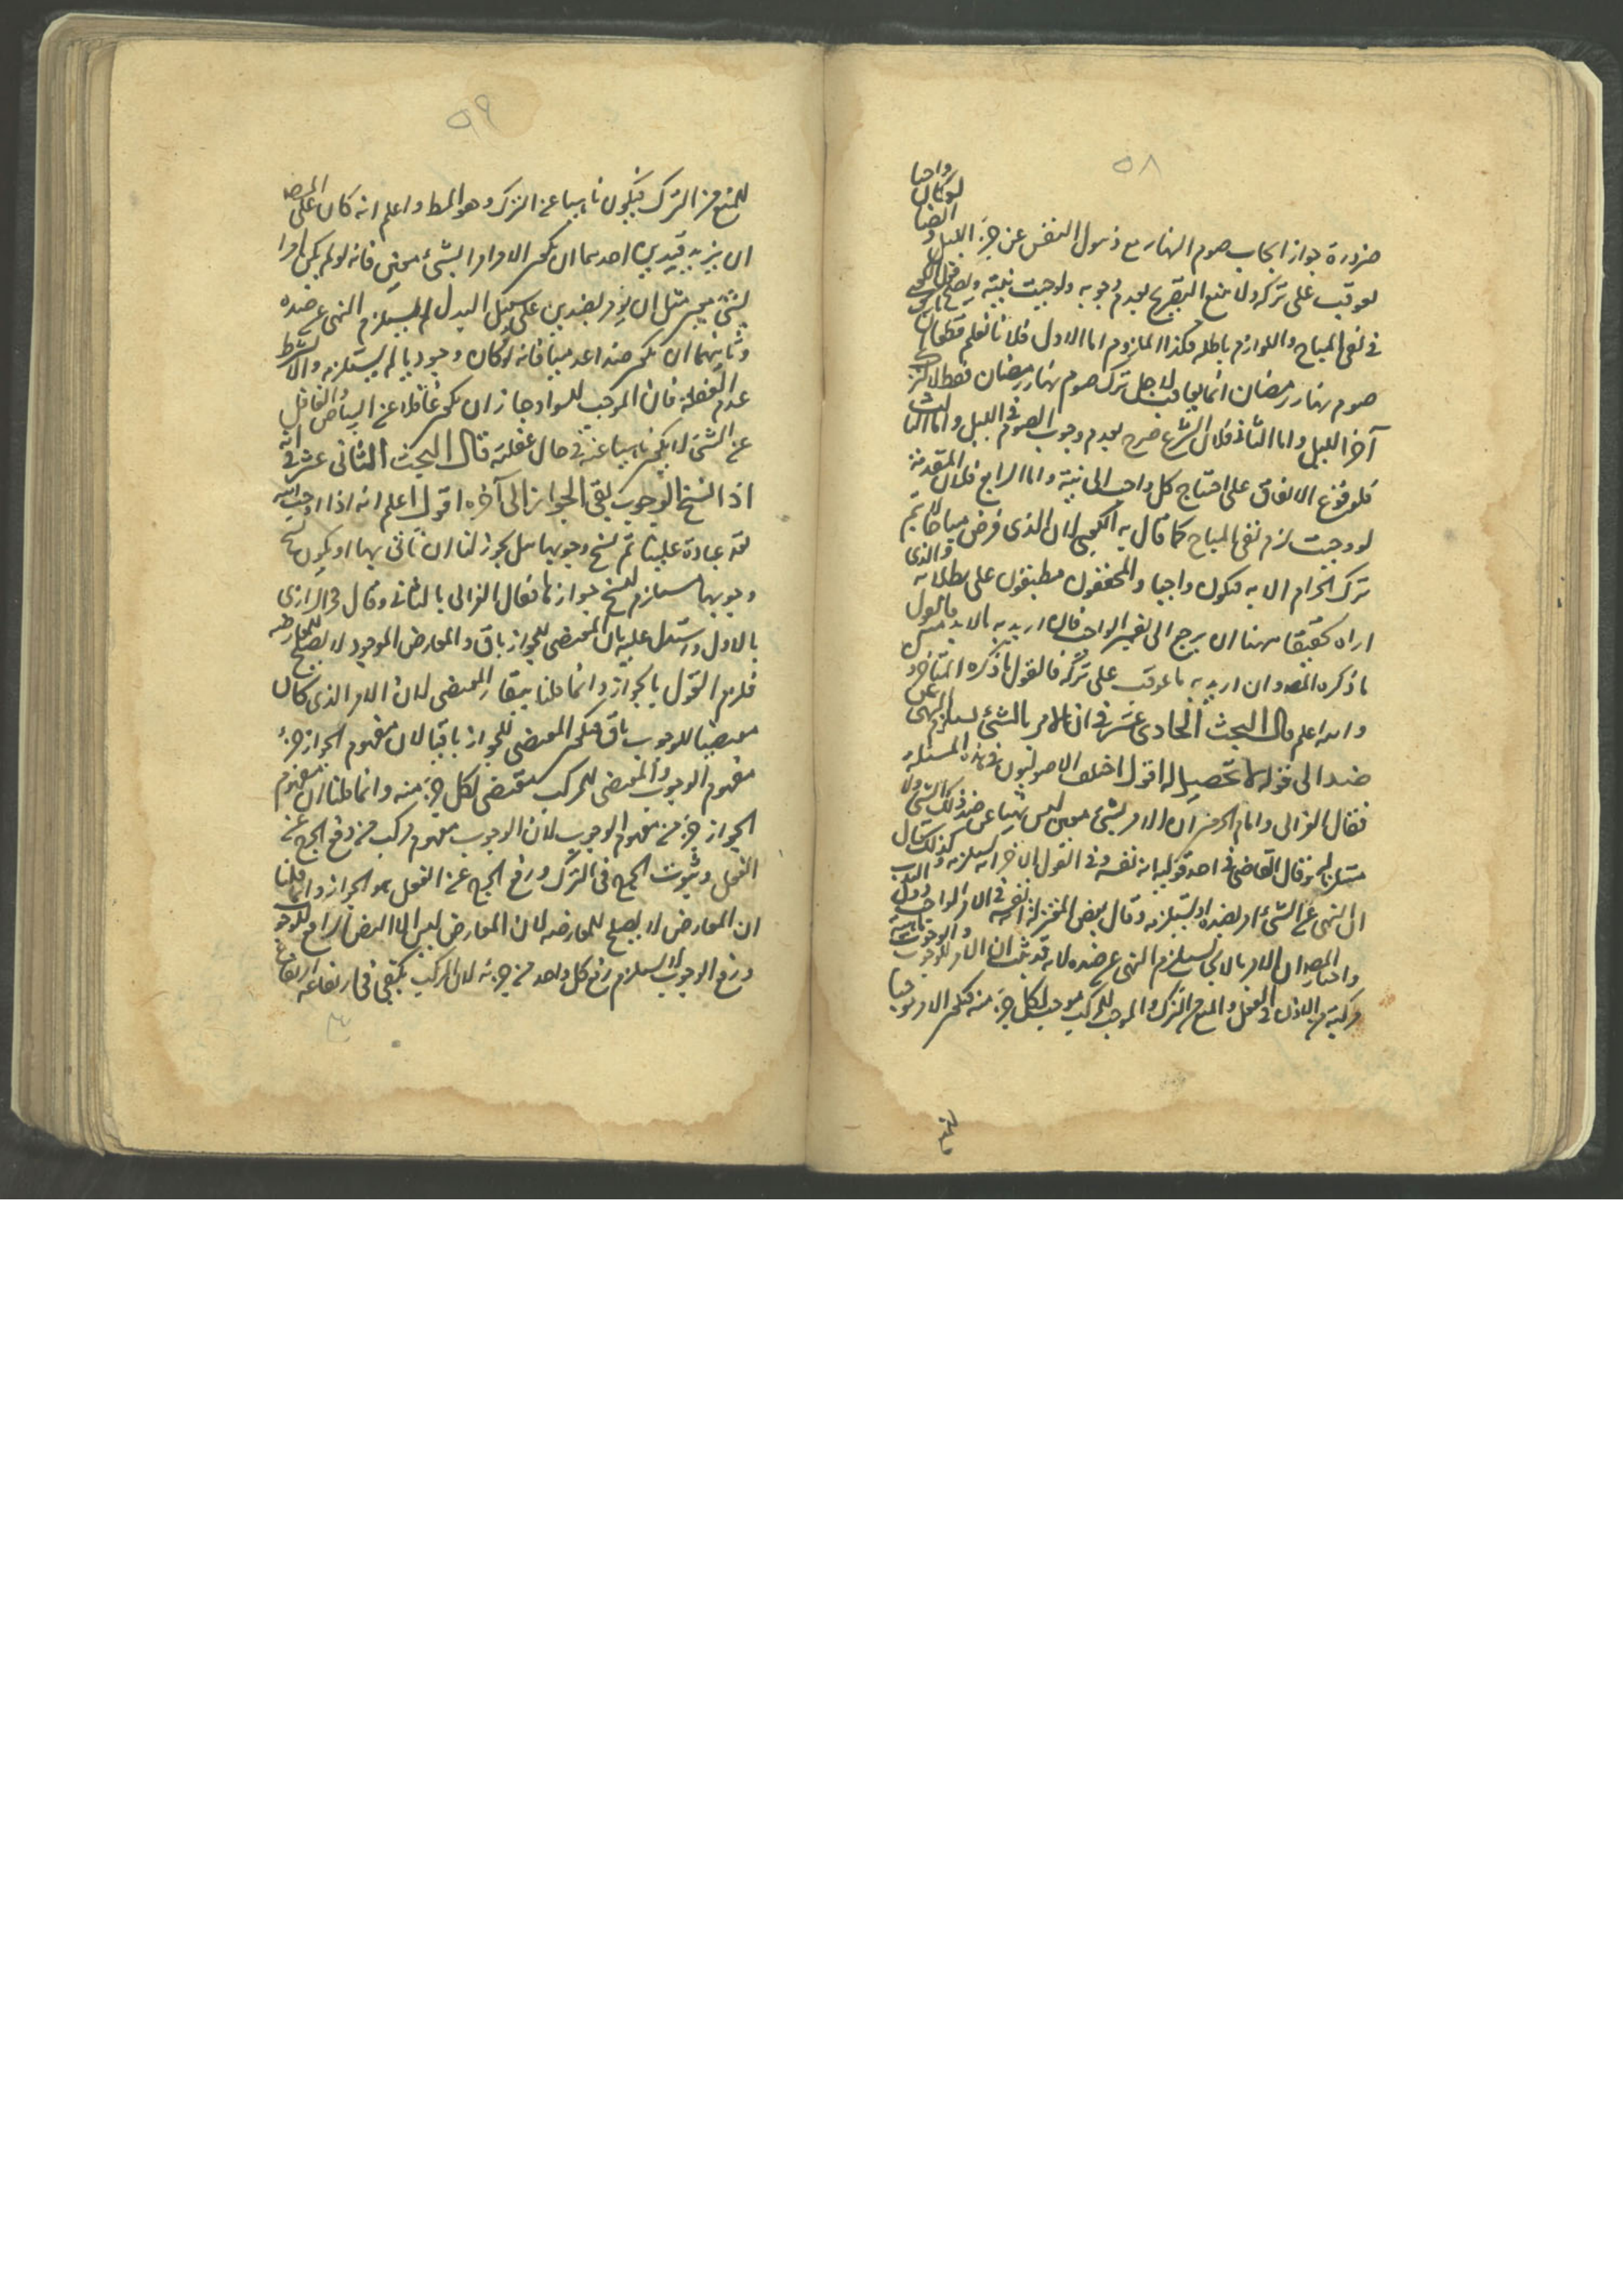 ٥٨
ضرورة جواز ايجاب صوم النهار مع ذهول النفس عن جزء الليل و ايضا لو كان واجبا
لعوقب على تركه ولا متنع التصريح بعدم وجوبه ولوجبت نيته ويصح قول الكعبى
فى نفى المباح واللوازم باطلة فكذا الملزوم اما الاول فلانا نعلم قطعا ان
صوم نهار رمضان انما يعاقب لاجل ترك صوم نهار رمضان فقط لا لترك
آخر الليل واما الثانى فلان الشرع صرح بعدم وجوب الصوم فى الليل واما الثالث
فلوقوع الاتفاق على احتياج كل واجب الى نية واما الرابع فلان المقدمة
لو وجبت لزم نفى المباح كما قال به الكعبى لان الذى فرض مباحا لا يتم
ترك الحرام الا به فيكون واجبا والمحققون مطبقون على بطلانه والذى
اراه تحقيقا ههنا ان يرجع الى تفسير الواجب فان اريد به ما لا بد منه فالقول
ما ذكره المصه وان اريد به ما عوقب على تركه فالقول ما ذكره المتأخر و
والله اعلم قال البحث الحادى عشر فى ان الامر بالشئ يستلزم النهى عن
ضده الى قوله لا تحصيل له اقول اختلف الاصوليون فى هذه المسئلة
فقال الغزالى وامام الحرمين ان الامر بشئ معين ليس نهيا عن ضد ذلك الشئ ولا
مستلزما له وقال القاضى فى احد قوليه انه نفسه وفى القول الاخر انه يستلزمه وكذلك قال
ان النهى عن الشئ امر بضده او يستلزمه وقال بعض المعتزلة انه نفسه فى الامر الواجب دون الندب
واختار المصه ان الامر بالايجاب يستلزم النهى عن ضده لانه قد ثبت ان الامر للوجوب والوجوب ماهية
مركبة من الاذن فى الفعل والمنع من الترك والموجب للمركب موجب لكل جزء منه فيكون الامر موجبا
٥٩
للمنع من الترك فيكون ناهيا عن الترك وهو المط واعلم انه كان على المصه
ان يزيد قيدين احدهما ان يكون الامر امرا بشئ معين فانه لو لم يكن امرا
بشئ معين مثل ان يؤمر بضدين على سبيل البدل لم يستلزم النهى عن ضده
وثانيهما ان يكون ضدا عدميا فانه لو كان وجوديا لم يستلزمه والا لشرط
عدم الغفلة فان الموجب للسواد جاز ان يكون غافلا عن البياض والغافل
عن الشئ لا يكون ناهيا عنه فى حال غفلته قال البحث الثانى عشر فى انه
اذا نسخ الوجوب بقى الجواز الى آخره اقول اعلم انه اذا اوجب الله
تعه عبادة علينا ثم نسخ وجوبها هل يجوز لنا ان ناتى بها او يكون نسخ
وجوبها مستلزم لنسخ جوازها فقال الغزالى بالثانى وقال فخر الرازى
بالاول واستدل عليه بان المقتضى للجواز باق والمعارض الموجود لا يصلح للمعارضة
فلزم القول بالجواز وانما قلنا ببقاء المقتضى لان الامر الذى كان
مقتضيا للوجوب باق فيكون المقتضى للجواز باقيا لان مفهوم الجواز جزء
مفهوم الوجوب والمقتضى للمركب مقتضى لكل جزء منه وانما قلنا ان مفهوم
الجواز جزء من مفهوم الوجوب لان الوجوب مفهوم مركب من رفع الحرج عن
الفعل وثبوت الحرج فى الترك ورفع الحرج عن الفعل هو الجواز وانما قلنا
ان المعارض لا يصلح للمعارضه لان المعارض ليس الا الرافع للوجوب
ورفع الوجوب لا يستلزم رفع كل واحد من جزئه لان المركب يكفى فى ارتفاعه ارتفاع